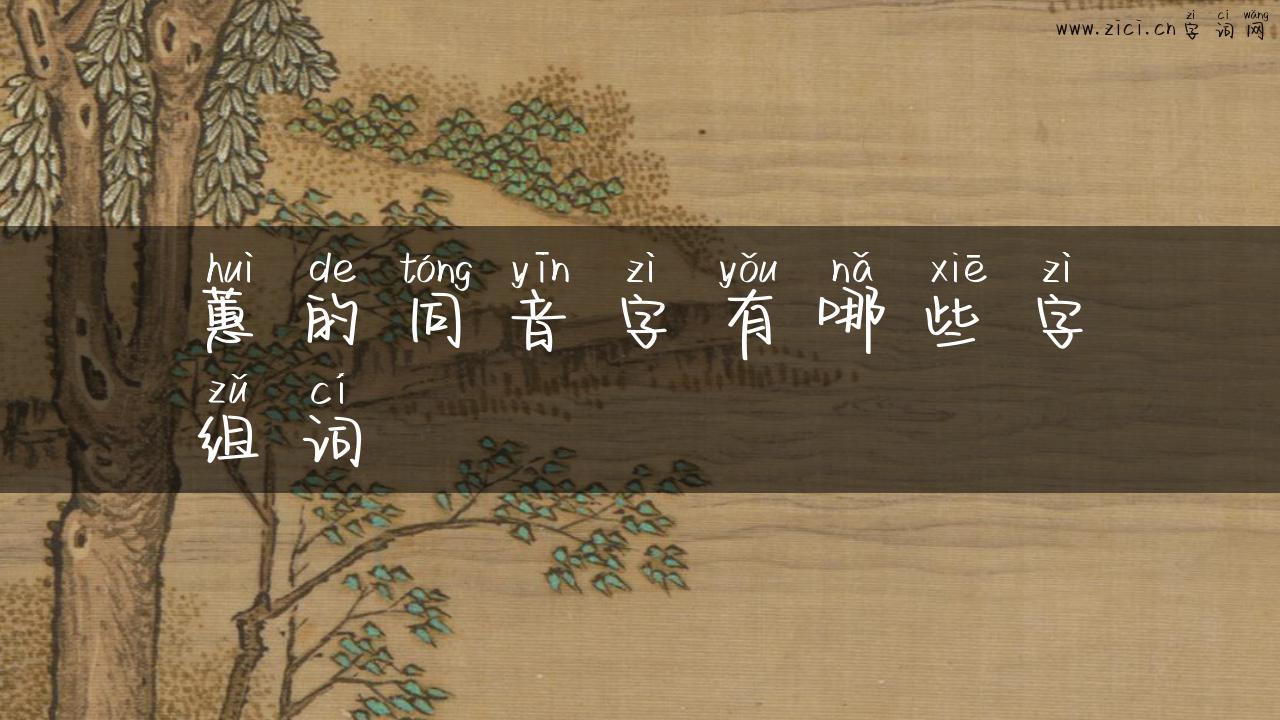 zì cí wǎng
www.zici.cn 字词网
huì de tóng yīn zì yǒu nǎ xiē zì
蕙的同音字有哪些字
zǔ cí
组词